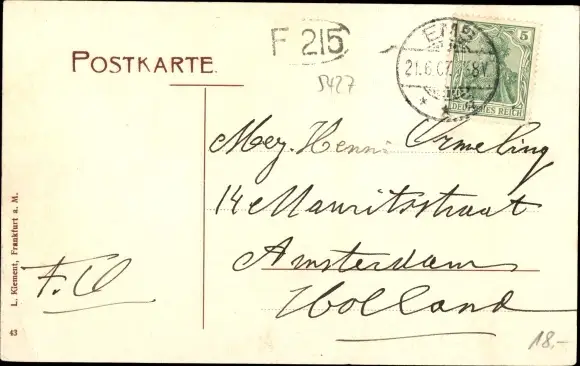 POSTKARTE
F 215
5427
EMS
21.6.07. 7-8V
5
DEUTSCHES REICH
Mej. Henni Ormeling
14 Mauritsstraat
Amsterdam
Holland
F.O
L. Klement, Frankfurt a. M.
43
18.-